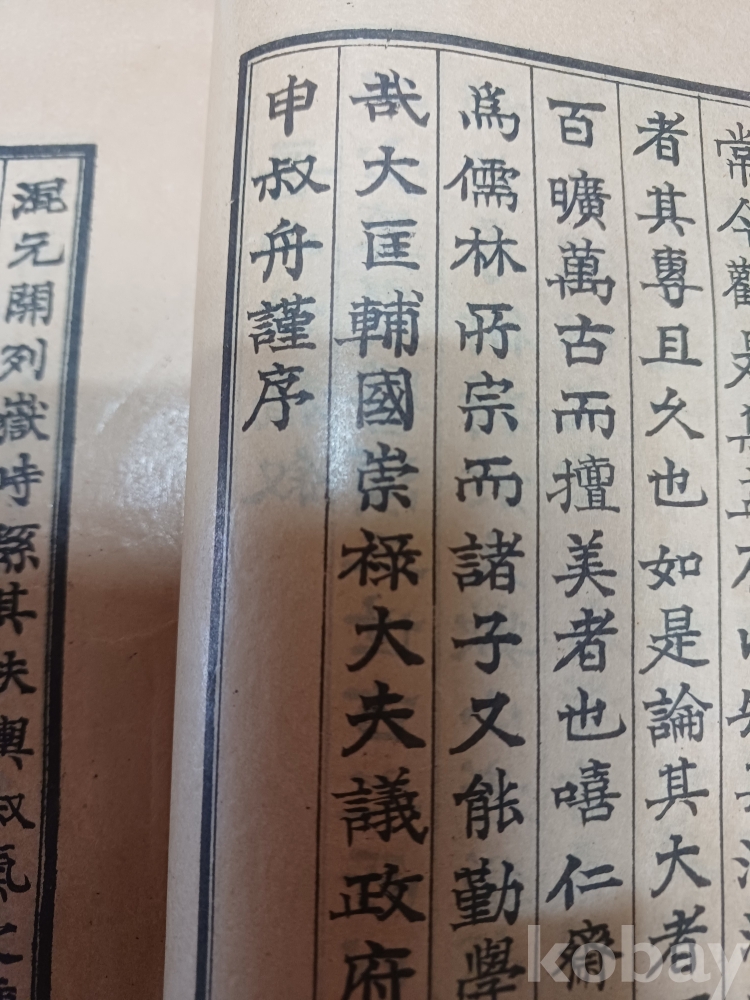 常今觀是
者其專且久也如是論其大者
百曠萬古而擅美者也嘻仁齋
爲儒林所宗而諸子又能勤學
哉大匡輔國崇祿大夫議政府
申叔舟謹序
混元開列嶽峙
其
kobay